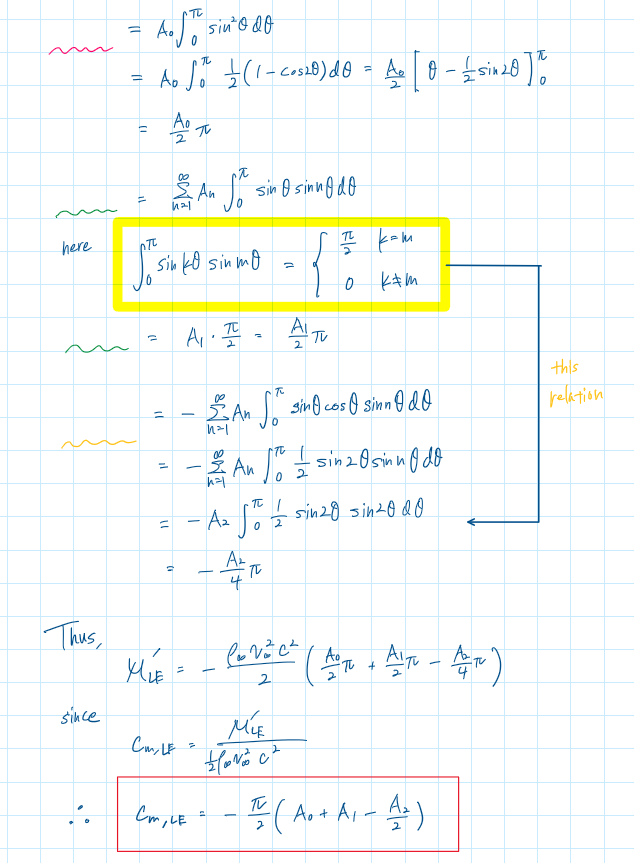 = A₀ ∫₀^π sin²θ dθ
= A₀ ∫₀^π 1/2 (1 - cos2θ) dθ = A₀/2 [ θ - 1/2 sin2θ ]₀^π
= A₀/2 π
= ∑_{n=1}^∞ Aₙ ∫₀^π sinθ sin nθ dθ
here ∫₀^π sin kθ sin mθ = { π/2 k=m
0 k≠m
= A₁ · π/2 = A₁/2 π
this
relation
= - ∑_{n=1}^∞ Aₙ ∫₀^π sinθ cosθ sin nθ dθ
= - ∑_{n=1}^∞ Aₙ ∫₀^π 1/2 sin2θ sin nθ dθ
= - A₂ ∫₀^π 1/2 sin2θ sin2θ dθ
= - A₂/4 π
Thus,
M'_LE = - ρ∞ V∞² c²/2 ( A₀/2 π + A₁/2 π - A₂/4 π )
since
C_m,LE = M'_LE / (1/2 ρ∞ V∞² c²)
∴ C_m,LE = - π/2 ( A₀ + A₁ - A₂/2 )